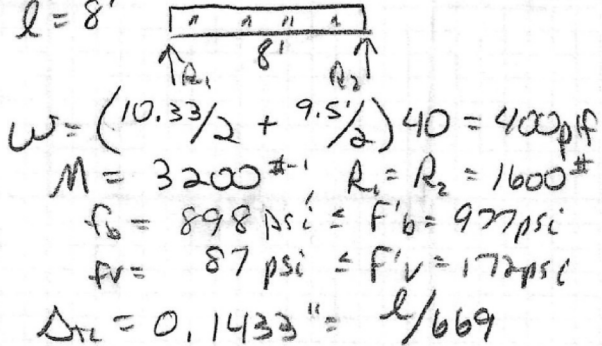 l = 8'
8'
R₁ R₂
w = (10.33/2 + 9.5'/2) 40 = 400 plf
M = 3200 #-' R₁ = R₂ = 1600 #
fb = 898 psi ≤ F'b = 977 psi
fv = 87 psi ≤ F'v = 172 psi
ΔTL = 0.1433" = l/669